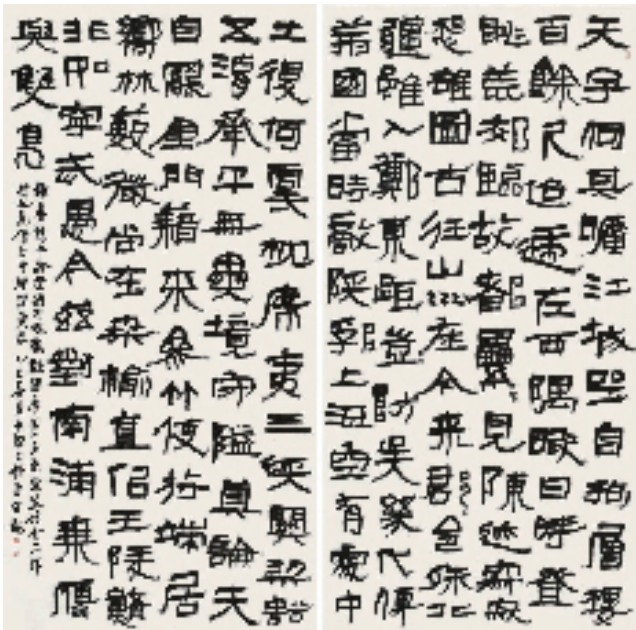 天宇何其曠江城坐自拘層樓
百餘尺迢遞在西隅暇日時登
眺荒郊臨故都纍纍見陳迹寂寂
想雄圖古往山川在今來郡邑殊北
疆雖入鄭東距豈防吳幾代傳
荊國當時敵陝郛上流空有處中
土復何虞枕席夷三峽關梁豁
五湖承平無異境守隘莫論夫
自罷金門籍來參竹使符端居
嚮林藪微尚在桑榆直似王陵戇
非如寧武愚今茲對南浦乘雁
與雙鳧